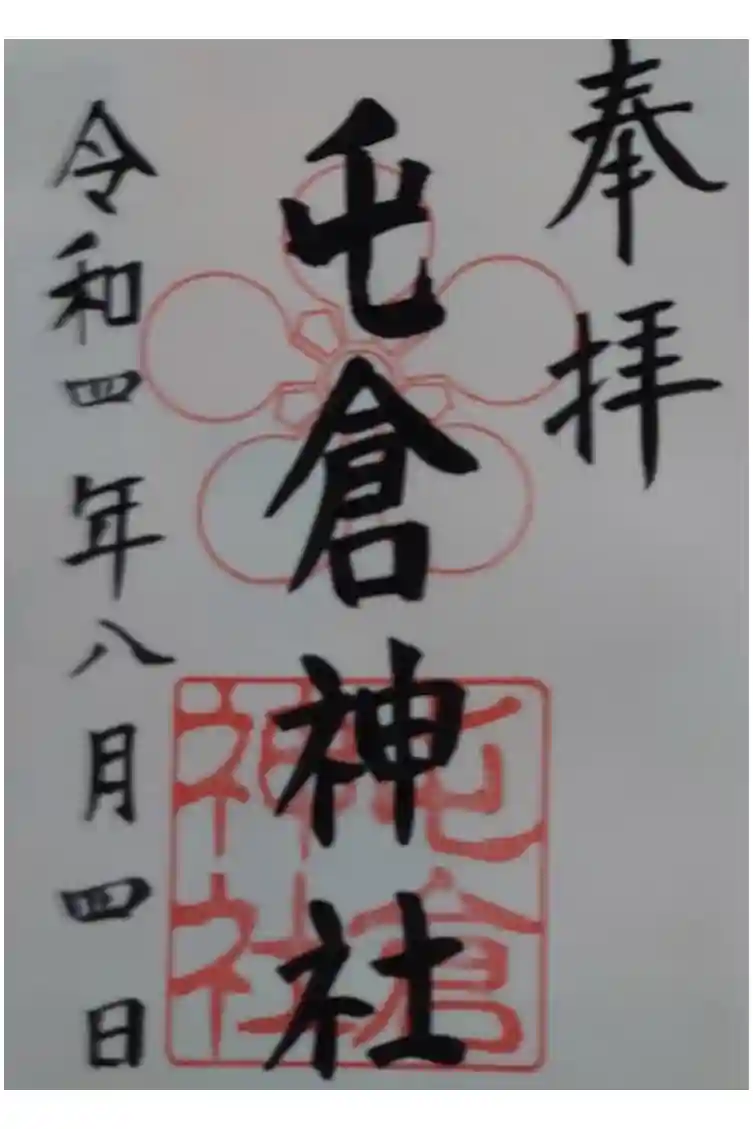 奉拝
屯倉神社
屯倉
神社
令和四年八月四日